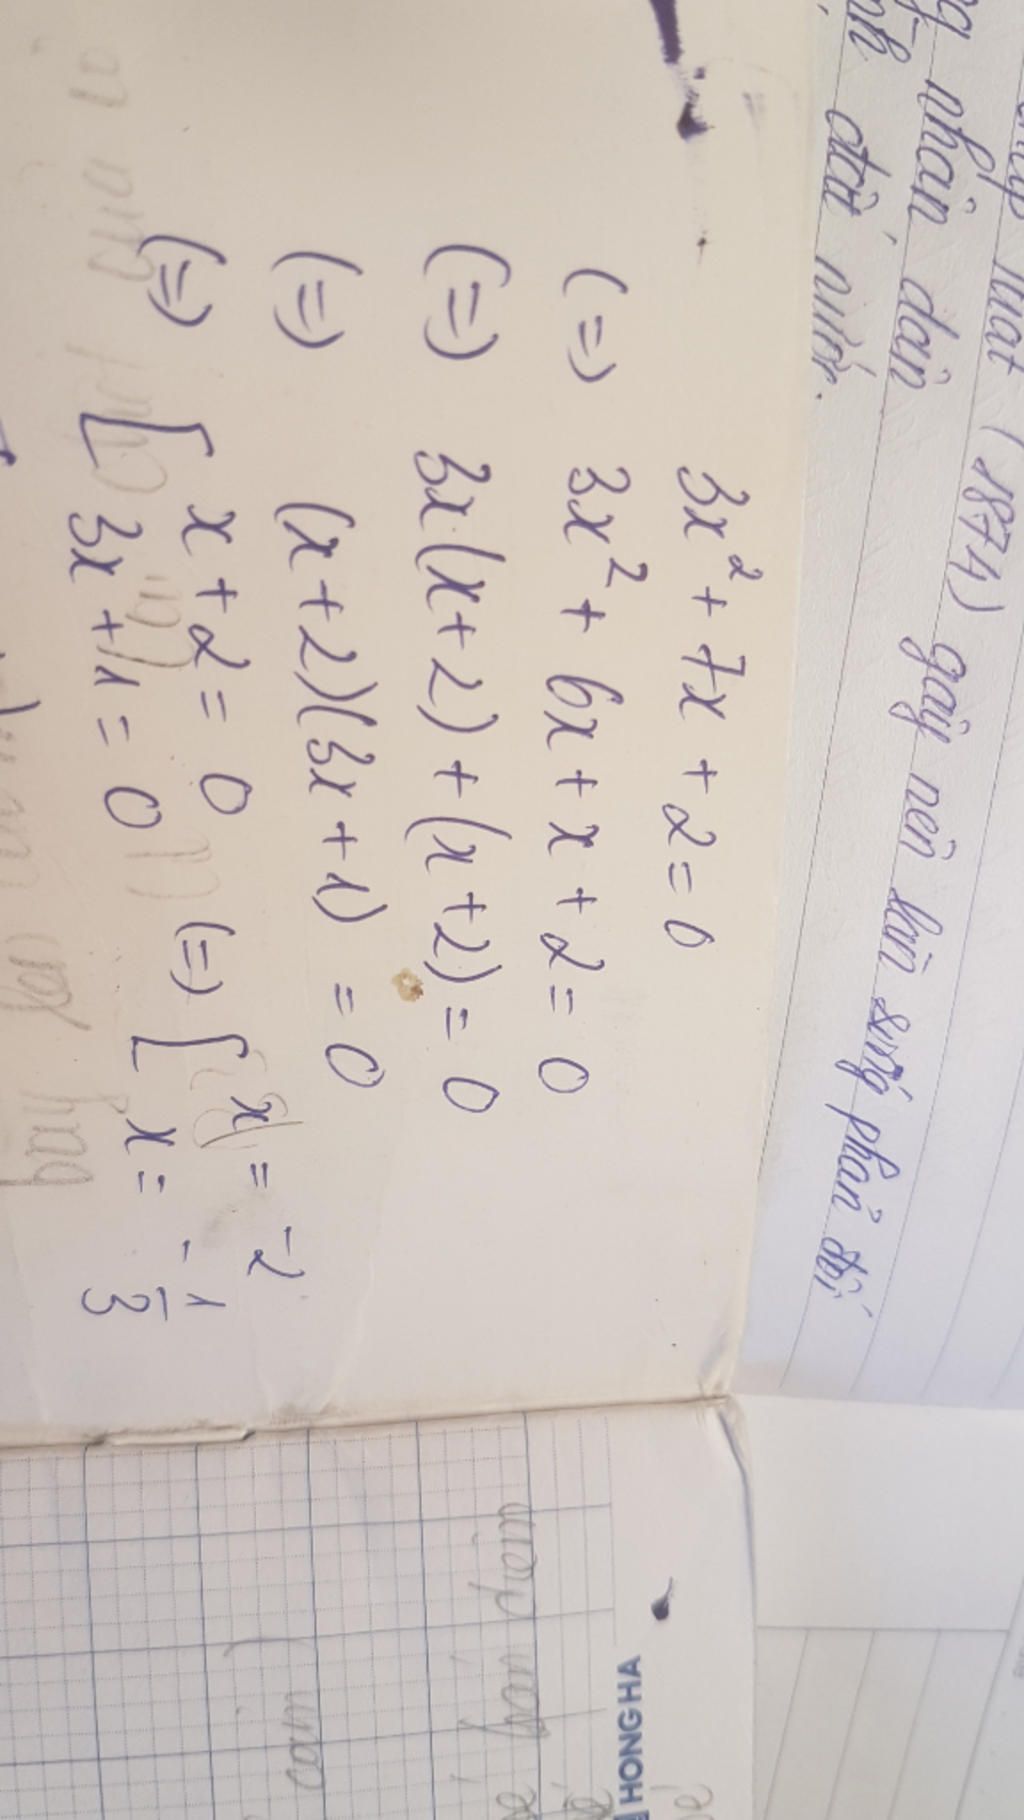 luật (1874) gây nên làn sóng phản đối
nhân dân
đất nước.
3x² + 7x + 2 = 0
(=) 3x² + 6x + x + 2 = 0
(=) 3x.(x+2) + (x+2) = 0
(=) (x+2)(3x+1) = 0
(=) [ x+2 = 0 (=) [ x = -2
3x+1 = 0 x = -1/3
HONG HA